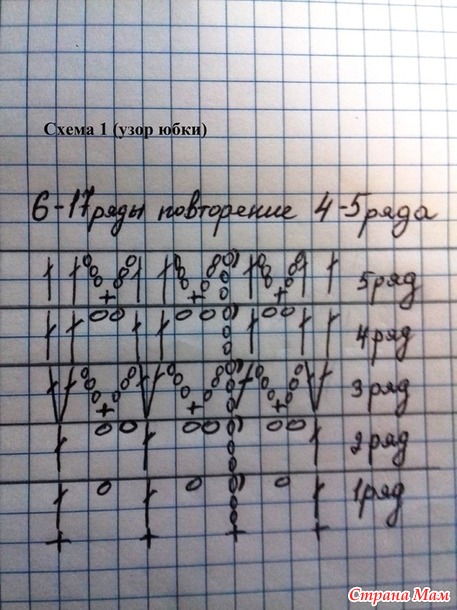 Схема 1 (узор юбки)
6-17 ряды повторение 4-5 ряда
5 ряд
4 ряд
3 ряд
2 ряд
1 ряд
Страна Мам